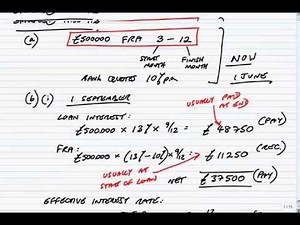 (a) £500000 FRA 3 - 12
START MONTH FINISH MONTH
NOW
1 JUNE
BANK QUOTES 10% pa
(b) (i) 1 SEPTEMBER
USUALLY PAID AT END
LOAN INTEREST:
£500000 × 13% × 9/12 = £48750 (PAY)
FRA:
£500000 × (13% - 10%) × 9/12 = £11250 (REC)
USUALLY AT START OF LOAN
NET £37500 (PAY)
EFFECTIVE INTEREST RATE: